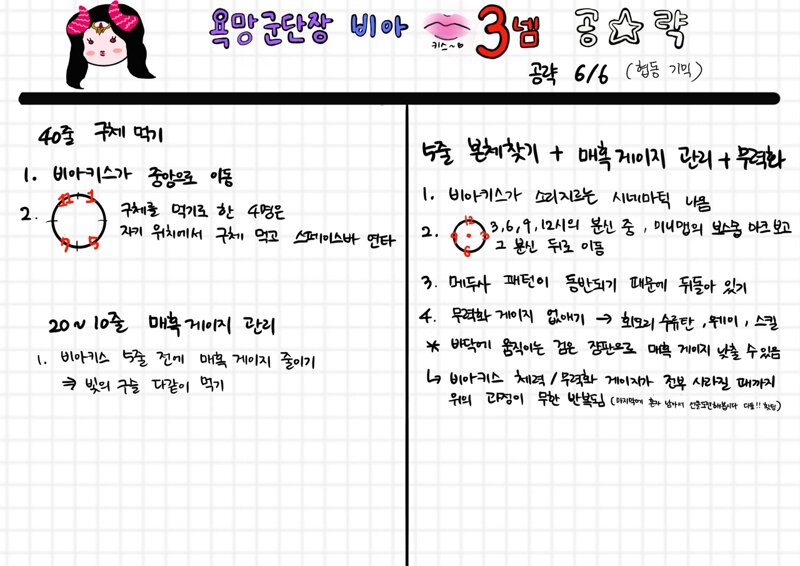 욕망군단장 비아 키스~♡ 3넴 공☆략
공략 6/6 (협동 기믹)
40줄 구체 먹기
1. 비아키스가 중앙으로 이동
2. 11 1 7 5 구체를 먹기로 한 4명은
자기 위치에서 구체 먹고 스페이스바 연타
20~10줄 매혹 게이지 관리
1. 비아키스 5줄 전에 매혹 게이지 줄이기
⇒ 빛의 구슬 다같이 먹기
5줄 본체찾기 + 매혹 게이지 관리 + 무력화
1. 비아키스가 소리지르는 시네마틱 나옴
2. 12 9 3 6 3,6,9,12시의 분신 중, 미니맵의 보스몹 마크 보고
그 분신 뒤로 이동
3. 메두사 패턴이 동반되기 때문에 뒤돌아 있기
4. 무력화 게이지 없애기 → 회오리 수류탄, 웨이, 스킬
* 바닥에 움직이는 검은 장판으로 매혹 게이지 낮출 수 있음
↳ 비아키스 체력/무력화 게이지가 전부 사라질 때까지
위의 과정이 무한 반복됨 (마지막에 혼자 남아서